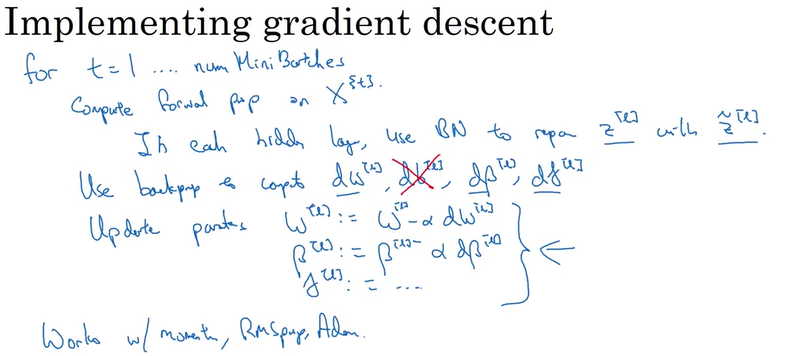 Implementing gradient descent
for t = 1 .... num Mini Batches
Compute forwal pop on X^{t}.
In each hidden lay, use BN to repan z^[l] with z̃^[l].
Use backprop to compt dw^[l], db^[l], dβ^[l], dγ^[l]
Update parates W^[l] := W^[l] - α dW^[l]
β^[l] := β^[l] - α dβ^[l]
γ^[l] := ....
Works w/ momentu, RMSprop, Adam.